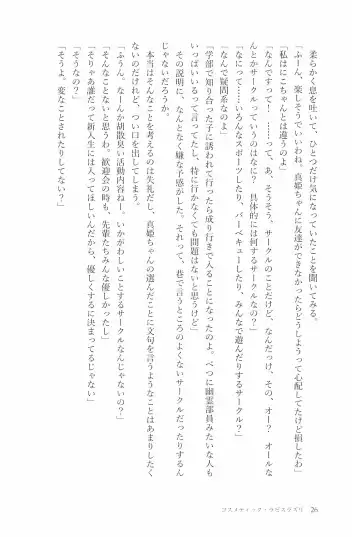 柔らかく息を吐いて、ひとつだけ気になっていたことを聞いてみる。
「ふーん、楽しそうでいいわね。真姫ちゃんに友達ができなかったらどうしようって心配してたけど損したわ」
「私はにこちゃんとは違うのよ」
「なんですって！　……って、あ、そうそう、サークルのことだけど、なんだっけ、その、オー？　オールな
んとかサークルっていうのはなに？　具体的には何するサークルなの？」
「なにって……いろんなスポーツしたり、バーベキューしたり、みんなで遊んだりするサークル？」
「なんで疑問系なのよ」
「学部で知り合った子に誘われて行ったら成り行きで入ることになったのよ。べつに幽霊部員みたいな人も
いっぱいいるって言ってたし、特に行かなくても問題はないと思うけど」
その説明に、なんとなく嫌な予感がした。それって、巷で言うところのよくないサークルだったりするん
じゃないだろうか。
本当はそんなことを考えるのは失礼だし、真姫ちゃんの選んだことに文句を言うようなことはあまりしたく
ないのだけれど、つい口を出してしまう。
「ふぅん、なーんか胡散臭い活動内容ねー。いかがわしいことするサークルなんじゃないの？」
「そんなことないと思うわ。歓迎会の時も、先輩たちみんな優しかったし」
「そりゃあ誰だって新入生には入ってほしいんだから、優しくするに決まってるじゃない」
「そうなの？」
「そうよ。変なことされたりしてない？」
コスメティック・ラピスラズリ　26